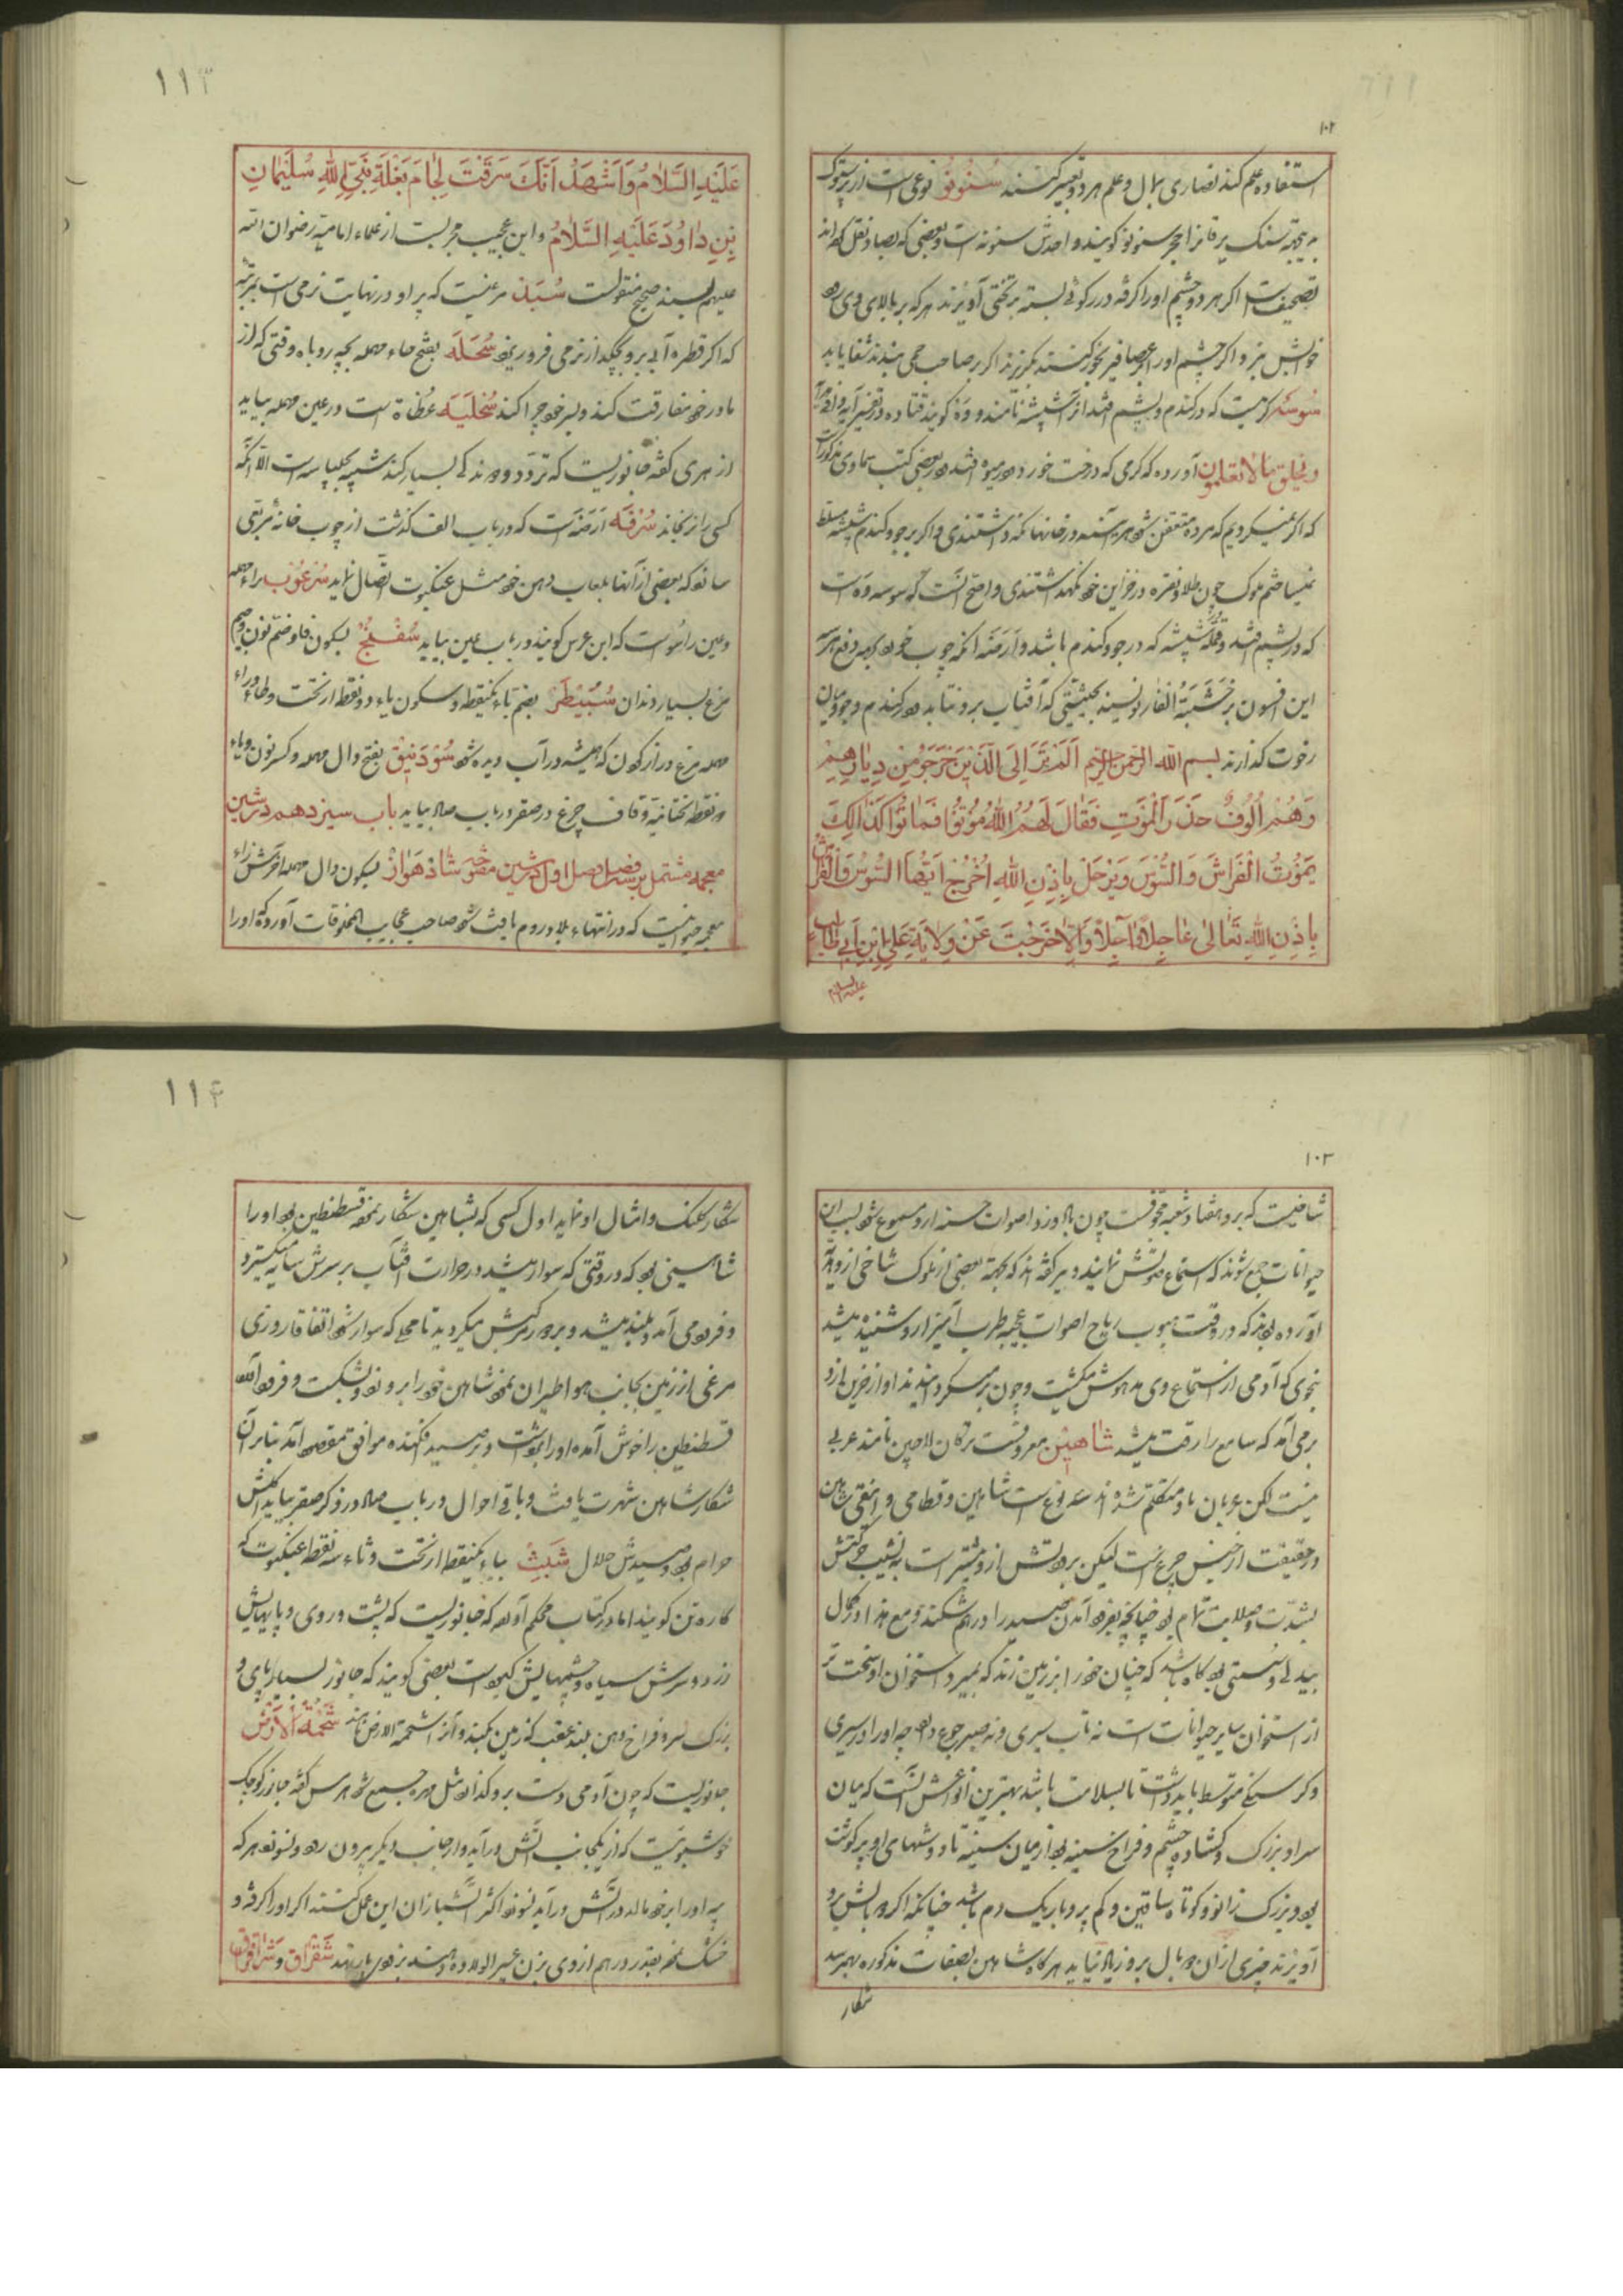 ۱۰۲
استفاده علم کند نصاری بمال و علم هر دو تعبیر کنند سُنُونُو نوعی است از پرستوک
سنک یرقانرا حجر سنونو کویند و احدش سنونه است و بعضی که بصاد نقل کرده اند
تصحیفست اکر هر دو چشم اورا کرفته در رکوئی بسته بر تختی آویزند هر که بر بالای وی رود
خوابش نبرد و اکر چشم اورا بخور کنند بگریزند اکر بر صاحب حمی بندند شفا یابد
سُوسه کرمیست که در کندم و پشم افتد آنرا شپشه نامند و
وَیَخلُقُ مَا لاٰ تَعلَمُونَ آورده که کرمی که درخت خورد و در میوه افتد در بعضی کتب سماوی مذکورست
که اکر نمیکردیم که مرده متعفن شود هر آینه در خانها نکه داشتندی و اکر بر جو و کندم شپشه مسلط
نمیساختم ملوک چون طلا و نقره در خزاین خود نکهداشتندی و اصح آنست که سوسه و است
که در پشم افتد و شپشه که در جو و کندم باشد و اَرَضَه آنکه چوب خورد بجهة دفع هر
این افسون بر خَشَبَةُ الفَار نویسند بحیثیتی که آفتاب برو نتابد و در کندم و جو و میان
رخوت کذارند بسم الله الرّحمن الرّحیم اَلَمْ تَرَ اِلَی الَّذینَ خَرَجُوا مِنْ دِیٰارِهِمْ
وَهُمْ اُلُوفٌ حَذَرَ الْمَوْتِ فَقٰالَ لَهُمُ اللهُ مُوتُوا فَمٰاتُوا کَذٰلِکَ
یَمُوتُ الْفَرٰاشَ وَالسُّوسَ وَیَرْحَلُ بِاِذْنِ اللهِ اُخْرُجْ اَیَّتُهَا السُّوسُ وَالْفَرٰاشُ
بِاِذْنِ اللهِ تَعٰالیٰ عٰاجِلاً وَ آجِلاً وَاِلاّٰ خَرَجْتَ عَنْ وِلاٰیَةِ عَلِیِّ ابْنِ اَبِی طٰالِب
علیه السلام
۱۱۳
عَلَیْهِ السَّلاٰمُ وَاَشْهَدُ اَنَّکَ سَرَقْتَ لِجٰامَ بَغْلَةِ نَبِیِّ اللهِ سُلَیْمٰانِ
بْنِ دٰاوُدَ عَلَیْهِ السَّلاٰمُ و این عجیب مجربست از علماء امامیه رضوان الله
علیهم بسند صحیح منقولست سُبَد مرغیست که پر او در نهایت نرمی است بمرتبه
که اکر قطره آبی برو بچکد از نرمی فرو ریزد سُحَلَه بفتح حاء مهمله بچه روباه وقتی که از
مادر خود مفارقت کند و بسر خود چرا کند سُحلیَه عُظٰاة است در عین مهمله بیاید
ازهری کفته جانوریست که تردد و دوندکی بسیار کند شبیه بچلپاسه است الا آنکه
کسی را نرنجاند سُرفَه اَرَضَه است که در باب الف کذشت از چوب خانه مربعی
سازد که بعضی از آنها بلعاب دهن خود مثل عنکبوت اتصال نماید سُرعُوب براء مهمله
و عین راسُوست که ابن عرس کویند در باب عین بیاید سُفنُجُ بسکون فا و ضم نون و جیم
مرغ بسیار دندان سُبَیطَر بضم باء یکنقطه و سکون یاء دو نقطه از تحت و طاء و راء
مهمله مرغ دراز کردن که همیشه در آب دیده شود سُودَنیق بفتح دال مهمله و کسر نون و یاء
دو نقطه تحتانیه و قاف چرغ در صقر در باب صاد بیاید باب سیزدهم در شین
معجمه مشتمل بر سه فصل فصل اول در شین مفتوحه شٰاذ هَوٰاز بسکون دال مهمله آخرش زاء
معجمه حیوانیست که در انتهاء بلاد روم یافت شود صاحب عجایب المخلوقات آورده که اورا
۱۰۳
شاخیست که برو هفتاد شعبه مجوّفست چون باد وزد اصوات حسنه ازو مسموع شود بسبب آن
حیوانات جمع شوند که استماع صوتش نمایند دمیری کفته اند که بجهة بعضی از ملوک شاخی ازو هدیه
آورده بودند که در وقت هبوب ریاح اصوات عجیبه طرب آمیز ازو شنیده میشد
بنحوی که آدمی از استماع وی مدهوش میکشت و چون بر میکردانیدند آواز حزین ازو
بر می آمد که سامع را رقت میشد شٰاهیْن معروفست ترکان لاچین نامند عربی
نیست لکن عربان باو متکلم شده اند سه نوع است شاهین و قطامی و انیقی شاهین
در حقیقت از جنس چرغست لیکن برودتش ازو بیشتر است بدین سبب حرکتش
بشدت و صلابت تمام بود چنانچه بفرود آمدن صید را درهم شکند و مع هذا در کمال
بیدلی و سستی بود کاه باشد که چنان خود را بر زمین زند که بمیرد استخوان او سخت تر
از استخوان سایر حیوانات است نه تاب سیری و نه صبر جوع دارد چه اورا در سیری
و کرسنکی متوسط باید داشت تا بسلامت باشد بهترین انواعش آنست که میان
سر او بزرک و کشاده چشم و فراخ سینه بود از میان سینه تا دوشهای او پر کوشت
بود و بزرک زانو و کوتاه ساقین و کم پر و باریک دم باشد چنانکه اکر دو بالش برو
آویزند چیزی از آن دو بال برو زیاد نیاید هر کاه شاهین بصفات مذکوره بهم رسد
شکار
۱۱۴
شکار کلنک و امثال او نماید اول کسی که بشاهین شکار نمود قسطنطین بود اورا
شاهینی بود که در وقتی که سوار میشد در حرارت آفتاب بر سرش سایه میکسترد
و فرود می آمد و بلند میشد و بر دور سرش میکردید تا محلی که سوار شود اتفاقا روزی
مرغی از زمین بجانب هوا طیران نمود شاهین خود را برو زد و بشکست و فرود آمد
قسطنطین را خوش آمده اورا بنواخت و بر صید افکنده موافق مقصود آمد بنابر آن
شکار شاهین شهرت یافت و باقی احوال در باب صاد در ذکر صقر بیاید کوشتش
حرام بود و صیدش حلال شَبَث بباء یکنقطه از تحت و ثاء سه نقطه عنکبوت که
کاره تن کویند اما در کتاب محکم آورده که جانوریست که پشت و روی و پایهایش
زرد و سرش سیاه و چشمهایش کبود است بعضی کویند که جانور بسیار پای و
بزرک سر و فراخ دهن بلند عقب که زمین بکند و آنرا شحمة الارض نامند شَحْمَةُ الْاَرْض
جانوریست که چون آدمی دست برو کذارد مثل مهره جمع شود هرمس کفته جانور کوچک
خوشبوئیست که از یکجانب آتش در آید و از جانب دیکر بیرون رود و نسوزد هر که
پیه اورا بر خود مالد و در آتش در آید نسوزد اکثر آتشبازان این عمل کنند اکر اورا کرفته و
خشک نموده بقدر درهم از وی بزن عسیر الولاده دهند بزودی بار نهد شَقِرّٰاق و شِرِقْرٰاق